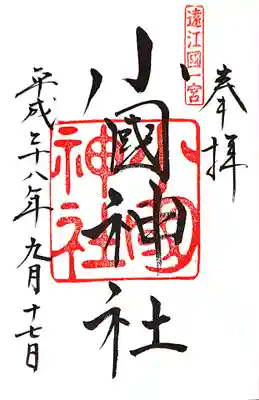 奉拝
遠江國一宮
小國神社
小國神社
平成二十八年九月十七日